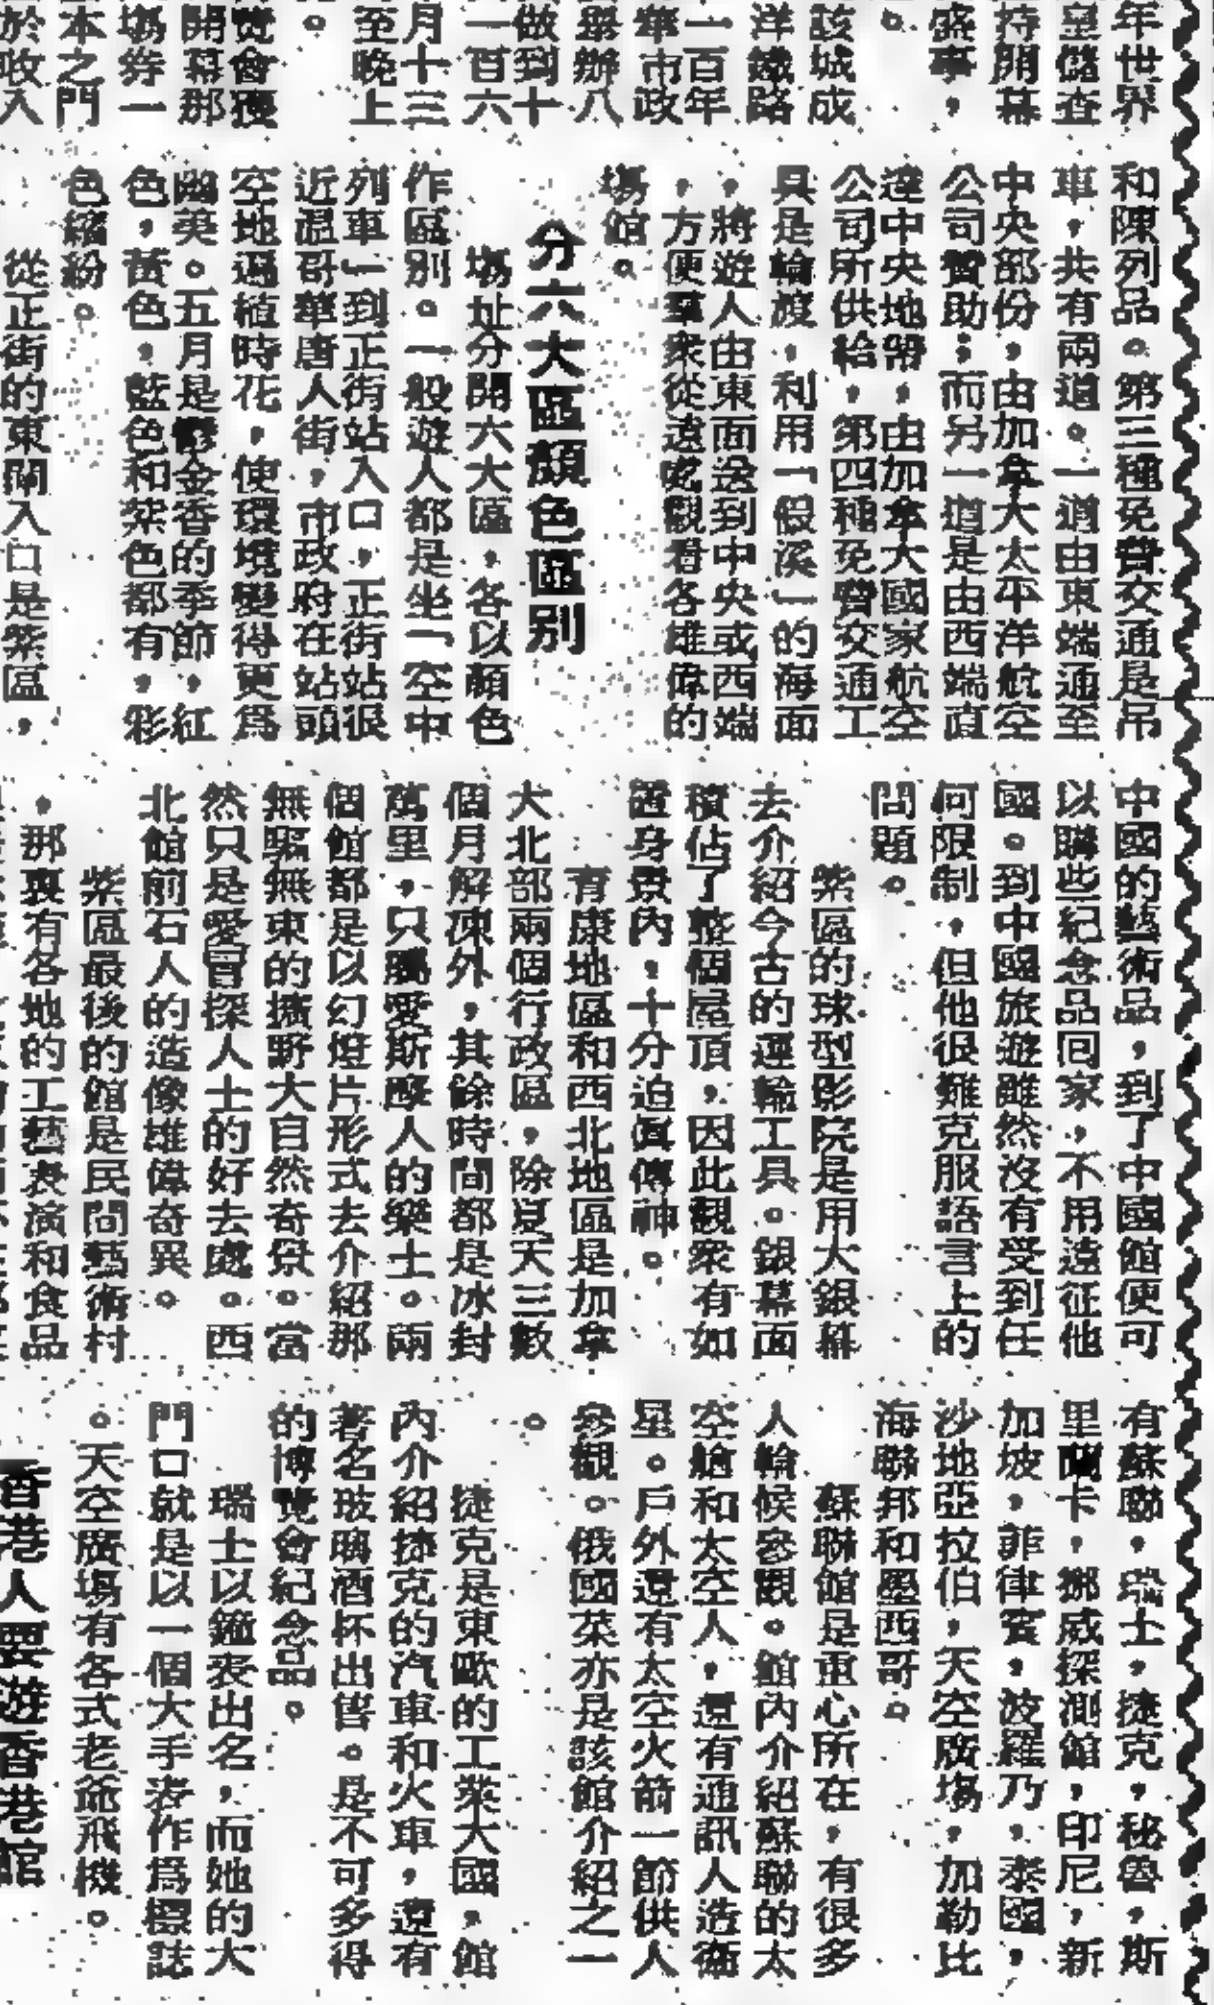 年世界
皇儲查
持開幕
盛事，
。
該城成
洋鐵路
一百年
華市政
舉辦八
做到十
一百六
月十三
至晚上
。
覽會獲
開幕那
場券一
本之門
於收入
和陳列品。第三種免費交通是吊
車，共有兩道。一道由東端通至
中央部份，由加拿大太平洋航空
公司贊助；而另一道是由西端直
達中央地帶，由加拿大國家航空
公司所供給，第四種免費交通工
具是輪渡，利用「假溪」的海面
，將遊人由東面送到中央或西端
，方便羣衆從遠處觀看各雄偉的
場館。
分六大區顏色區別
場址分開六大區，各以顏色
作區別。一般遊人都是坐「空中
列車」到正街站入口，正街站很
近温哥華唐人街，市政府在站頭
空地遍植時花，使環境變得更爲
幽美。五月是鬱金香的季節，紅
色，黃色，藍色和紫色都有，彩
色繽紛。
從正街的東閘入口是紫區，
中國的藝術品，到了中國館便可
以購些紀念品回家，不用遠征他
國。到中國旅遊雖然沒有受到任
何限制，但他很難克服語言上的
問題。
紫區的球型影院是用大銀幕
去介紹今古的運輸工具。銀幕面
積佔了整個屋頂，因此觀衆有如
置身景內，十分迫眞傳神。
育康地區和西北地區是加拿
大北部兩個行政區，除夏天三數
個月解凍外，其餘時間都是冰封
萬里，只屬愛斯酸人的樂土。兩
個館都是以幻燈片形式去介紹那
無驅無束的擴野大自然奇景。當
然只是愛冒探人士的好去處。西
北館前石人的造像雄偉奇異。
紫區最後的館是民間藝術村
，那裏有各地的工藝表演和食品
有蘇聯，瑞士，捷克，秘魯，斯
里蘭卡，挪威探測館，印尼，新
加坡，菲律賓，波羅乃，泰國，
沙地亞拉伯，天空廣場，加勒比
海聯邦和墨西哥。
蘇聯館是重心所在，有很多
人輪候參觀。館內介紹蘇聯的太
空艙和太空人，還有通訊人造衞
星。戶外還有太空火箭一節供人
參觀。俄國菜亦是該館介紹之一
。
捷克是東歐的工業大國，館
內介紹捷克的汽車和火車，還有
著名玻璃酒杯出售。是不可多得
的博覽會紀念品。
瑞士以鐘表出名，而她的大
門口就是以一個大手表作爲標誌
。天空廣場有各式老爺飛機。
香港人要遊香港館